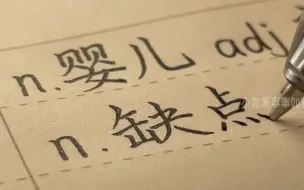 n.婴儿 adj
n.缺点